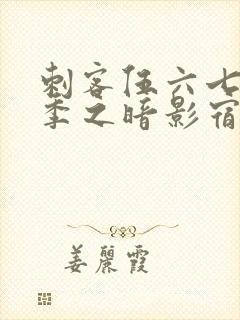 刺客伍六七
季之暗影宿
姜丽霞